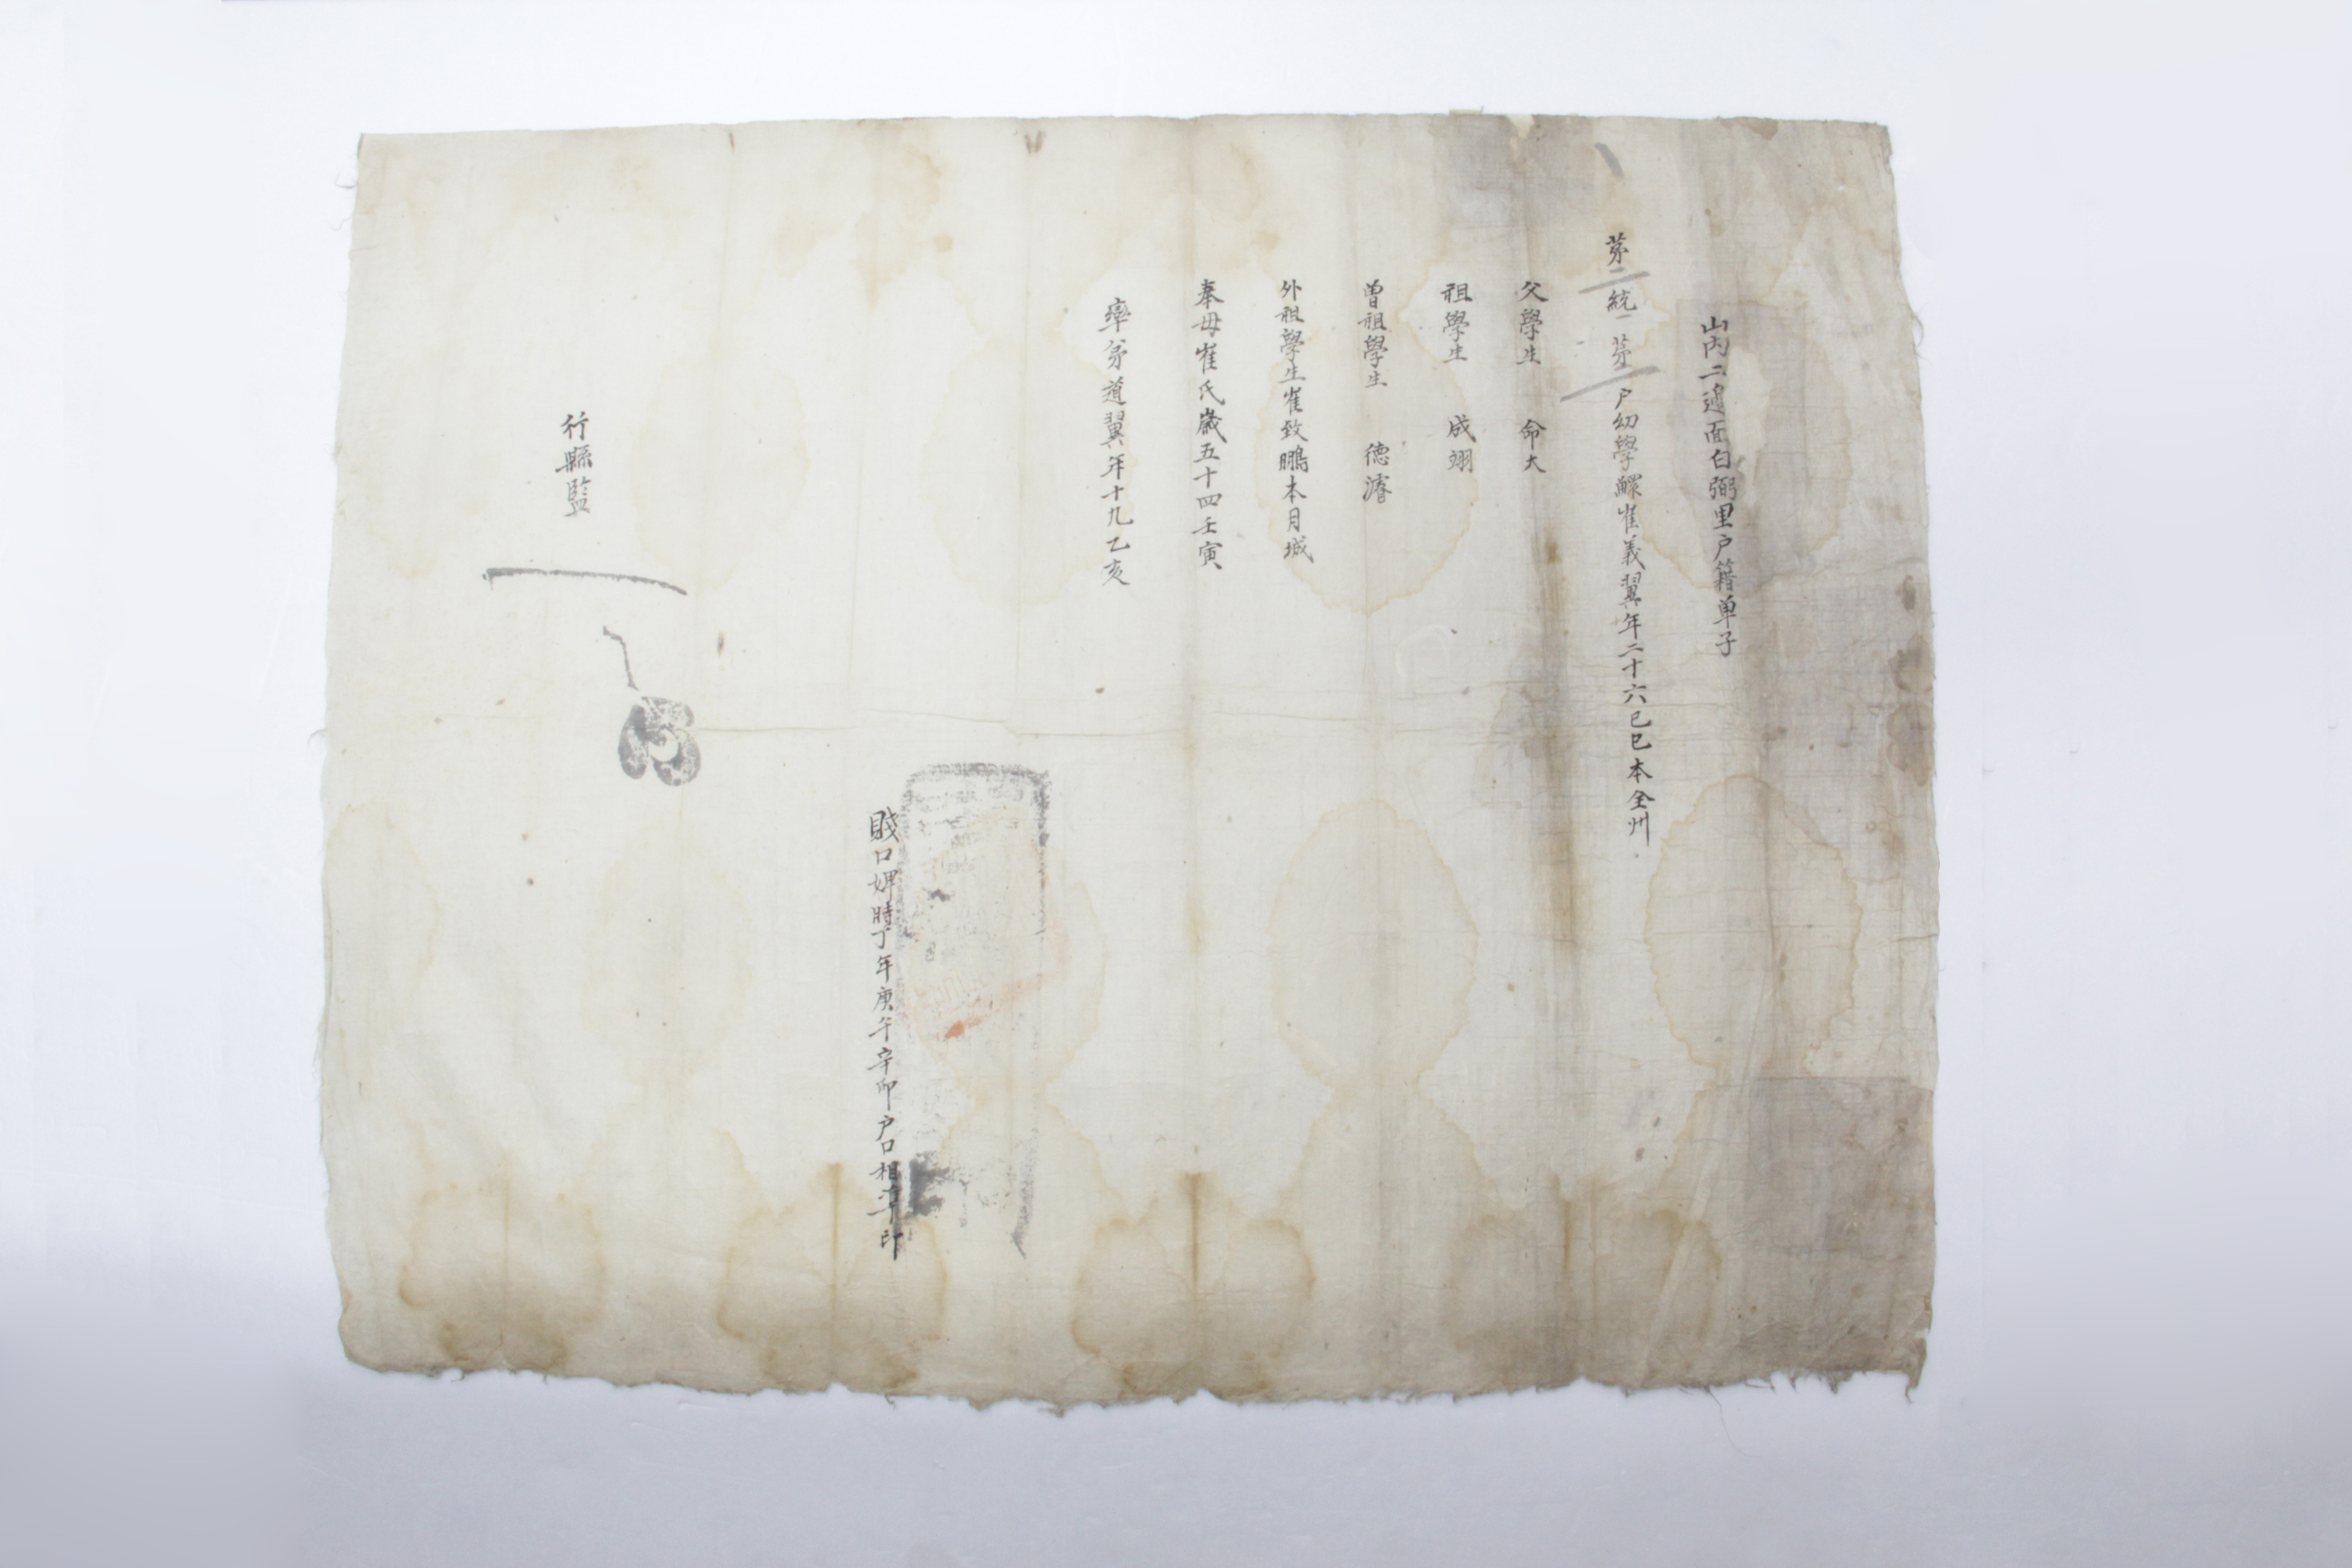 山內二遁面白弼里戶籍单子
第二統一第一戶幼學鰥崔義翼年二十六己巳本全州
父學生 命大
祖學生 成翊
曾祖學生 德濬
外祖學生崔致鵬本月城
奉母崔氏歲五十四壬寅
率弟道翼年十九乙亥
賤口婢時丁年庚午辛卯戶口相準印
行縣監